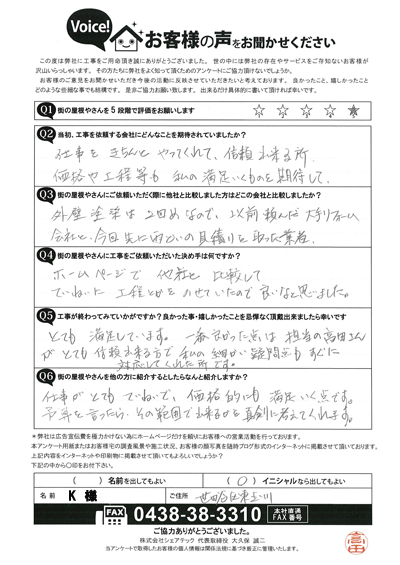 Voice!
お客様の声をお聞かせください
この度は弊社に工事をご用命頂き誠にありがとうございました。世の中には弊社の存在やサービスをご存知ないお客様が
沢山いらっしゃいます。その方たちに弊社をよく知って頂くためのアンケートにご協力頂けないでしょうか。
お客様のご意見をお聞かせいただき今後の活動に反映させていただきたいと考えております。良かったこと、嬉しかったこと
どのような些細な事でも結構です。是非ご協力お願い致します。出来るだけ具体的に書いて頂ければ幸いです。
Q1 街の屋根やさんを5段階で評価をお願いします ☆ ☆ ☆ ☆ ★
Q2 当初、工事を依頼する会社にどんなことを期待されていましたか?
仕事を きちんと やってくれて、信頼出来る所
価格や工程等も 私の満足いくものを期待して、
Q3 街の屋根やさんにご依頼いただく際に他社と比較しました方はどこの会社と比較しましたか?
外壁塗装は2回めなので、以前頼んだ大手リフォーム
会社と、今回先に雨といの見積りを取った業者、
Q4 街の屋根やさんに工事をご依頼いただいた決め手は何ですか?
ホームページで 他社と 比較して
ていねいに 工程とかを のせていたので 良いなと思いました。
Q5 工事が終わってみていかがですか?良かった事・嬉しかったことを忌憚なく頂戴出来ましたら幸いです
とても 満足しています。一番良かった点は 担当の高田さん
がとても信頼出来る方で 私の細かい疑問点も すぐに
対応してくれた所です。
Q6 街の屋根やさんを他の方に紹介するとしたらなんと紹介しますか?
仕事がとても ていねいで、価格的にも 満足いく点です。
予算を言ったら、その範囲で出来るかを 真剣に考えてくれます。
※弊社は広告宣伝費を極力かけない為にホームページだけを頼りにお客様への営業活動を行っております。
本アンケート用紙またはお客様宅の調査風景や施工状況、お客様の顔写真を随時ブログ形式のインターネットに掲載させて頂いております。
上記内容をインターネットや印刷物に掲載させて頂いてもよろしいでしょうか?
下記の中から○印をお付け下さい。
( ) 名前を出してもよい ( ○ ) イニシャルなら出してもよい
名前 K 様 ご住所 世田谷区東玉川
FAX 0438-38-3310 本社直通 FAX番号
ご協力ありがとうございました。
株式会社シェアテック 代表取締役 大久保 誠二
当アンケートで取得したお客様の個人情報は関係法規に基づき厳正に管理いたします。
高田